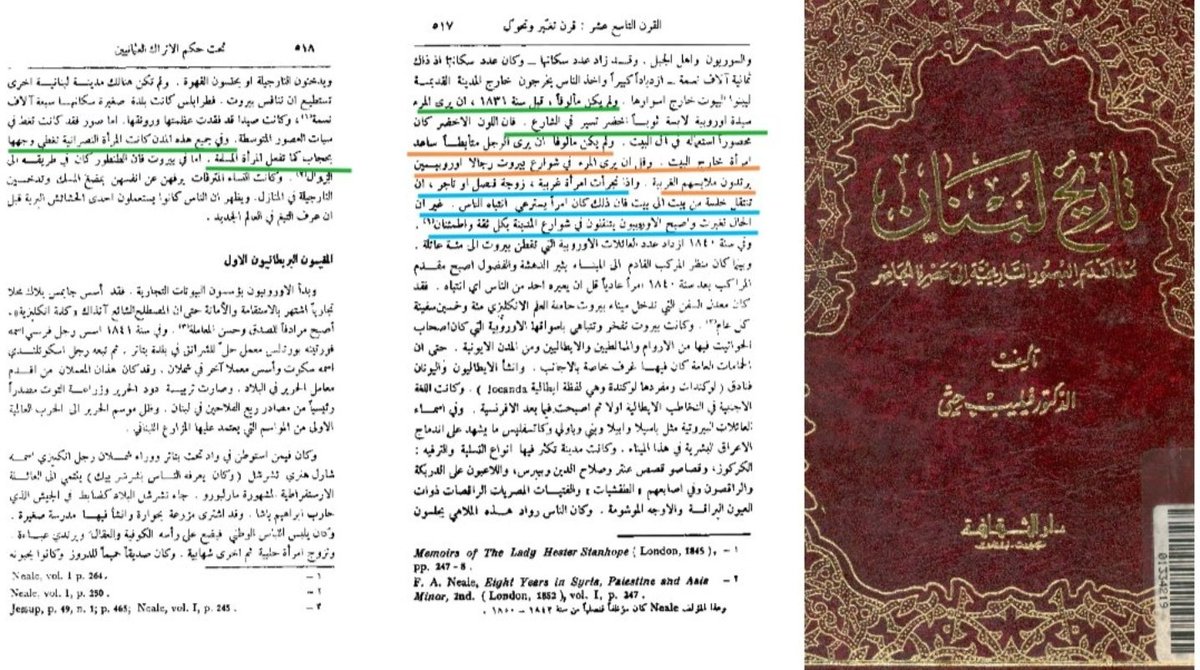 تاريخ لبنان
منذ اقدم العصور التاريخية الى عصرنا الحاضر
تأليف
الدكتور فيليب حتي
دار الثقافة
بيروت - لبنان
0134219
القرن التاسع عشر : قرن تغيّر وتحوّل
٥١٧
والسوريون واهل الجبل . وقد زاد عدد سكانها – وكان عدد سكانها اذ ذاك
ثمانية آلاف نسمة – ازدياداً كبيراً واخذ الناس يخرجون خارج المدينة القديمة
ليبنوا البيوت خارج اسوارها . ولم يكن مألوفاً ، قبل سنة ١٨٣١ ، ان يرى المرء
سيدة اوروبية لابسة ثوباً اخضر تسير في الشارع . فان اللون الاخضر كان
محصوراً استعماله في آل البيت . ولم يكن مألوفاً ان يرى الرجل متأبطاً ساعد
امرأة خارج البيت . وقل ان يرى المرء في شوارع بيروت رجالا اوروبيين
يرتدون ملابسهم الغربية . واذا تجرأت امرأة غربية ، زوجة قنصل او تاجر ، ان
تنتقل خلسة من بيت الى بيت فان ذلك كان امراً يسترعي انتباه الناس . غير ان
الحال تغيرت واصبح الاوروبيون يتنقلون في شوارع المدينة بكل ثقة واطمئنان(١) .
وفي سنة ١٨٤٠ ازداد عدد العائلات الاوروبية التي تقطن بيروت الى مئة عائلة .
وبينما كان منظر المركب القادم الى الميناء يثير الدهشة والفضول اصبح مقدم
المراكب بعد سنة ١٨٤٠ امراً عادياً قل ان يعيره احد من الناس اي انتباه . فقد
كان معدل السفن التي تدخل ميناء بيروت حاملة العلم الانكليزي مئة وخمسين سفينة
كل عام(٢) . وكانت بيروت تفخر وتتباهى باسواقها الاوروبية التي كان اصحاب
الحوانيت فيها من الاروام والمالطيين والايطاليين ومن المدن الايونية . حتى ان
الحمامات العامة كان فيها غرف خاصة بالاجانب . وانشأ الايطاليون واليونان
فنادق ( لوكندات ومفردها لوكندة وهي لفظة ايطالية locanda ) . وكانت اللغة
الاجنبية في التخاطب الايطالية اولا ثم اصبحت فيما بعد الافرنسية . وفي اسماء
العائلات البيروتية مثل باسيلا وابيلا وبني وياولي وكاتسفليس ما يشهد على اندماج
الاعراق البشرية في هذا الميناء . وكانت مدينة تكثر فيها انواع التسلية والترفيه :
الكركوز، وقصاصو قصص عنتر وصلاح الدين وبيبرس، واللاعبون على الدربكة
والراقصون وفي اصابعهم « الطقشيات » والفتيات المصريات الراقصات ذوات
العيون البراقة والاوجه الموشومة . وكان الناس رواد هذه الملاهي يجلسون
١ – Memoirs of The Lady Hester Stanhope ( London, 1845 ),
pp. 247 - 8 .
٢ – F. A. Neale, Eight Years in Syria, Palestine and Asia
Minor, 2nd. ( London, 1852 ), vol. I, p. 247 .
وهذا المؤلف Neale كان موظفاً قنصلياً من سنة ١٨٤٢ – ١٨٥٠ .
٥١٨
تحت حكم الاتراك العثمانيين
ويدخنون النارجيلة او يحتسون القهوة . ولم تكن هنالك مدينة لبنانية اخرى
تستطيع ان تنافس بيروت . فطرابلس كانت بلدة صغيرة سكانها سبعة آلاف
نسمة(١) ، وكانت صيدا قد فقدت عظمتها ورونقها . اما صور فقد كانت تغط في
سبات العصور المتوسطة. وفي جميع هذه المدن كانت المرأة النصرانية تغطي وجهها
بحجاب كما تفعل المرأة المسلمة . اما في بيروت فان الطنطور كان في طريقه الى
الزوال(٢) . وكانت النساء المترفات يرفهن عن انفسهن بمضغ المسك وتدخين
النارجيلة في المنازل . ويظهر ان الناس كانوا يستعملون احدى الحشائش البرية قبل
ان عرف التبغ في العالم الجديد .
المقيمون البريطانيون الاول
وبدأ الاوروبيون يؤسسون البيوتات التجارية . فقد أسس جايمس بلاك محلا
تجارياً اشتهر بالاستقامة والأمانة حتى ان المصطلح الشائع آنذاك «كلمة انكليزية»،
أصبح مرادفاً للصدق وحسن المعاملة(٣) . وفي سنة ١٨٤١ اسس رجل فرنسي اسمه
فورتينه بورتاليس معمل حلّ للشرانق في بلدة بتاتر . ثم تبعه رجل اسكوتلندي
اسمه سكوت وأسس معملا آخر في شملان . وقد كان هذان المعملان من اقدم
معامل الحرير في البلاد . وصارت تربية دود الحرير وزراعة التوت مصدراً
رئيسياً من مصادر ريع الفلاحين في لبنان . وظل موسم الحرير الى الحرب العالمية
الاولى من المواسم التي يعتمد عليها المزارع اللبناني .
وكان فيمن استوطن في واد تحت بتاتر ووراء شملان رجل انكليزي اسمه
شارل هنري تشرشل ( وكان يعرفه الناس بشرشر بيك ) ينتمي الى العائلة
الارستقراطية المشهورة مارلبورو . جاء تشرشل البلاد كضابط في الجيش الذي
حارب ابراهيم باشا . وقد اشترى مزرعة بحوارة وانشأ فيها مدرسة صغيرة .
وكان يلبس اللباس الوطني فيضع على رأسه الكوفية والعقال ويرتدي عباءة .
وتزوج امرأة حلبية ثم اخرى شهابية . وكان صديقاً حميماً للدروز وكانوا يحبونه
١ – Neale, vol. 1 p. 264 .
٢ – Neale, vol. 1, p. 250 .
٣ – Jessup, p. 49, n. 1; p. 465; Neale, vol. I, p. 245 .